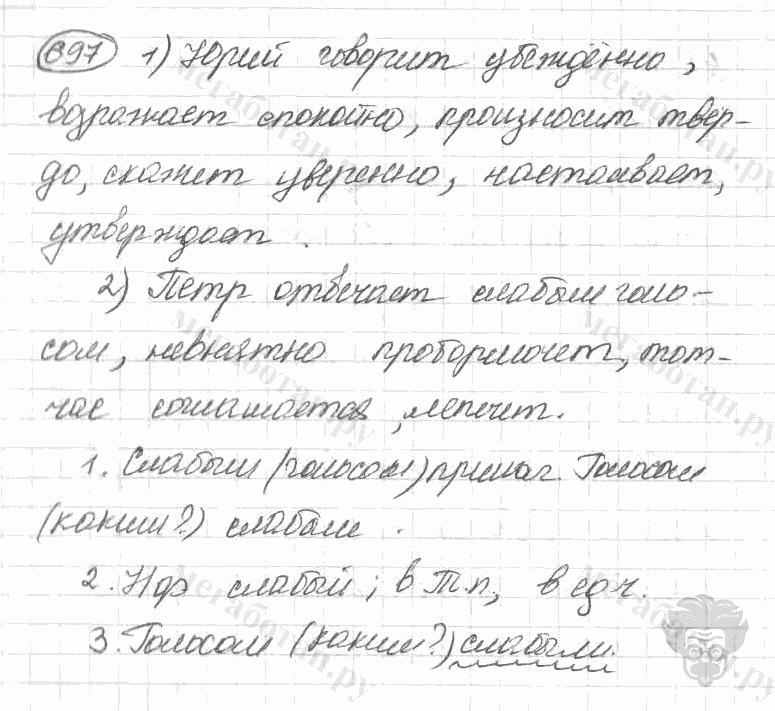 697 1) Юрий говорит убеждённо,
возражает спокойно, произносит твёр-
до, скажет уверенно, настаивает,
утверждает.
2) Петр отвечает слабым голо-
сом, невнятно пробормочет, тот-
час соглашается, лепечет.
1. Слабым (голосом) прилаг. Голосом
(каким?) слабым.
2. Н.ф слабый; в Т.п, в ед.ч.
3. Голосом (каким?) слабым.
мегаботан.ру
мегаботан.ру
мегаботан.ру
мегаботан.ру
мегаботан.ру
мегаботан.ру